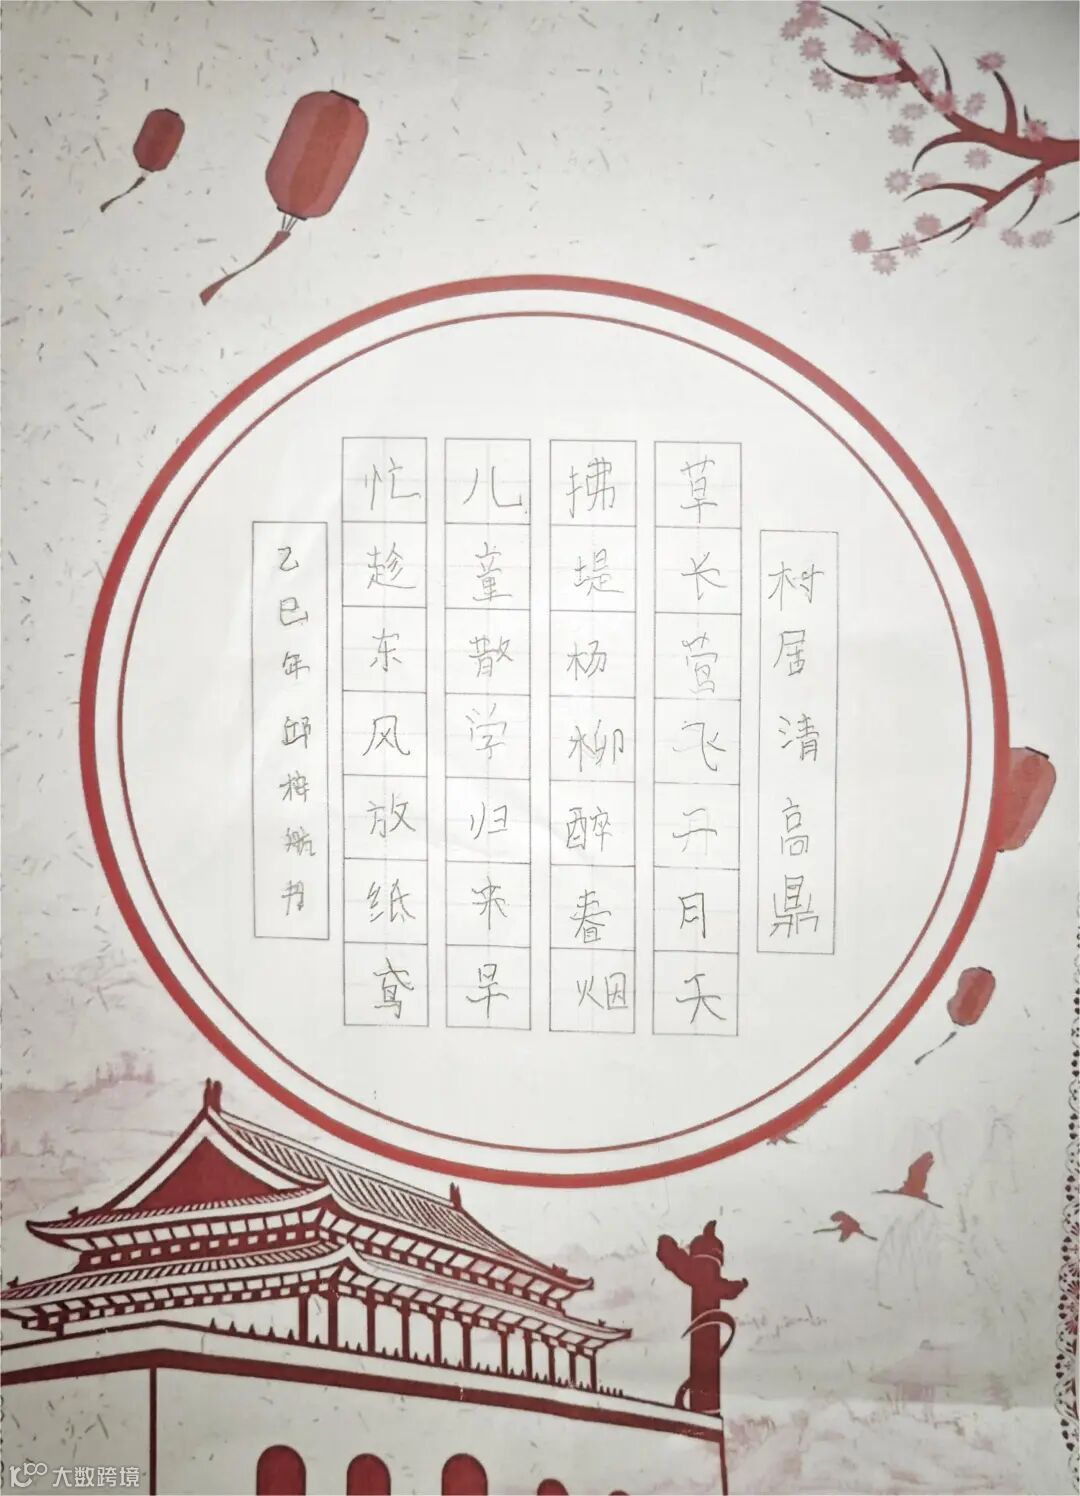 村居 清 高鼎
草长莺飞开月天
拂堤杨柳醉春烟
儿童散学归来早
忙趁东风放纸鸢
乙巳年 邱梓航书
大数跨境